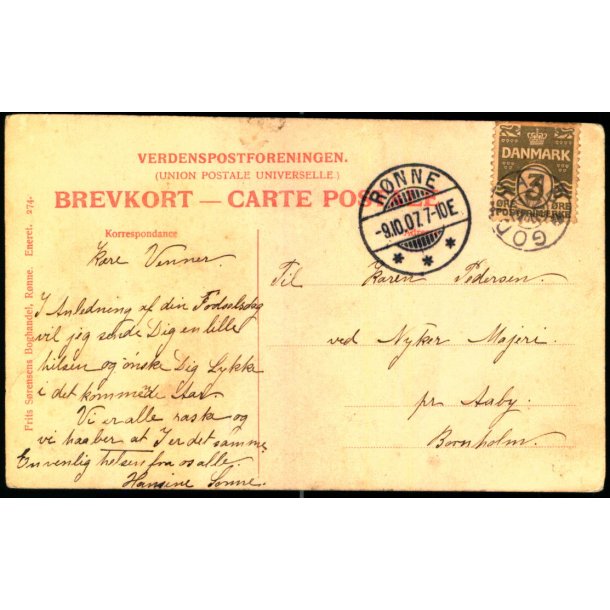 VERDENSPOSTFORENINGEN.
(UNION POSTALE UNIVERSELLE.)
BREVKORT — CARTE POSTALE
Korrespondance
Kære Venner.
I Anledning af din Fødselsdag
vil jeg sende Dig en lille
hilsen og ønske Dig Lykke
i det kommede Aar
Vi er alle raske og
vi haaber at I er det samme
En venlig helsen fra os alle.
Hansine Sonne.
Til Karen Pedersen.
ved Nyker Majeri.
pr Aaby.
Bornholm.
RØNNE
-9.10.07. 7-10E
DANMARK
3
ØRE ØRE
POSTFRIMÆRKE
Frits Sørensens Boghandel, Rønne. Eneret. 274.